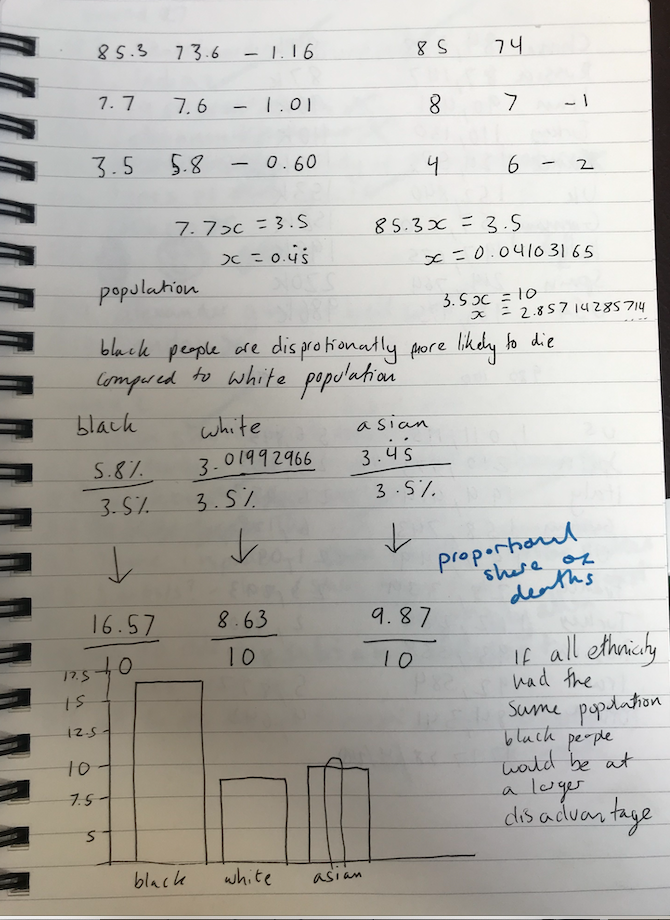 85.3 73.6 - 1.16 85 74
7.7 7.6 - 1.01 8 7 -1
3.5 5.8 - 0.60 4 6 - 2
7.7x = 3.5 85.3x = 3.5
x = 0.4̇5̇ x = 0.04103165
population 3.5x = 10
x = 2.85714285714
black people are disprotionatly more likely to die
compared to white population
black white asian
5.8% 3.01992966 3.4̇5̇
3.5% 3.5% 3.5%
↓ ↓ ↓
proportional
share of
deaths
16.57 8.63 9.87
10 10 10
If all ethnicity
had the
same population
black people
would be at
a larger
disadvantage
17.5
15
12.5
10
7.5
5
black white asian